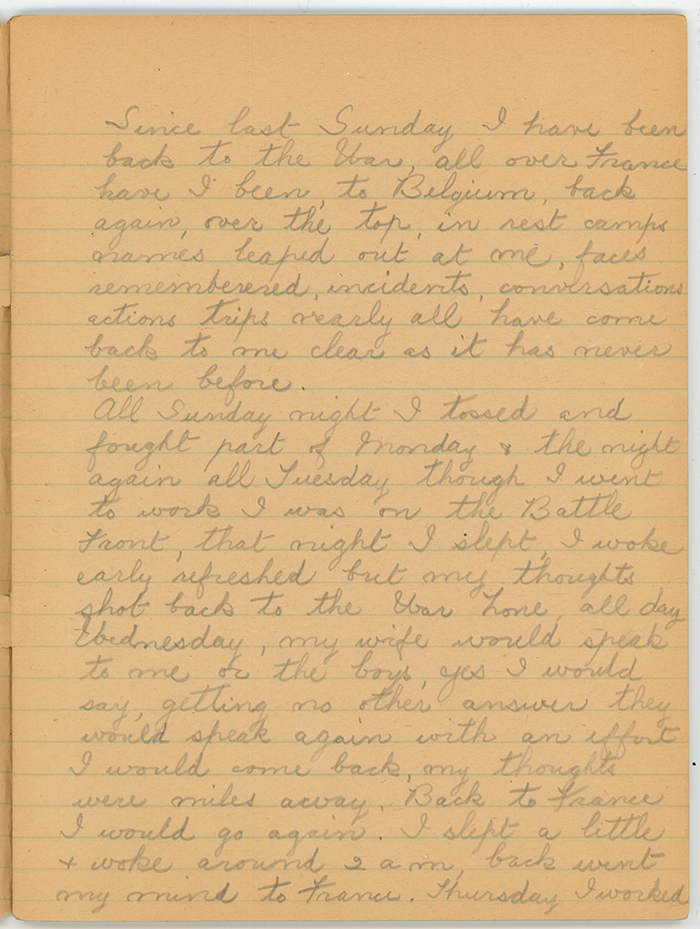 Since last Sunday I have been
back to the War, all over France
have I been, to Belgium, back
again, over the top, in rest camps
names leaped out at me, faces
rememberered, incidents, conversations
actions trips nearly all have come
back to me clear as it has never
been before.
All Sunday night I tossed and
fought part of Monday & the night
again all Tuesday though I went
to work I was on the Battle
Front, that night I slept, I woke
early refreshed but my thoughts
shot back to the War Zone, all day
Wednesday, my wife would speak
to me or the boys, yes I would
say, getting no other answer they
would speak again with an effort
I would come back, my thoughts
were miles away. Back to France
I would go again. I slept a little
& woke around 2 a m, back went
my mind to France. Thursday I worked